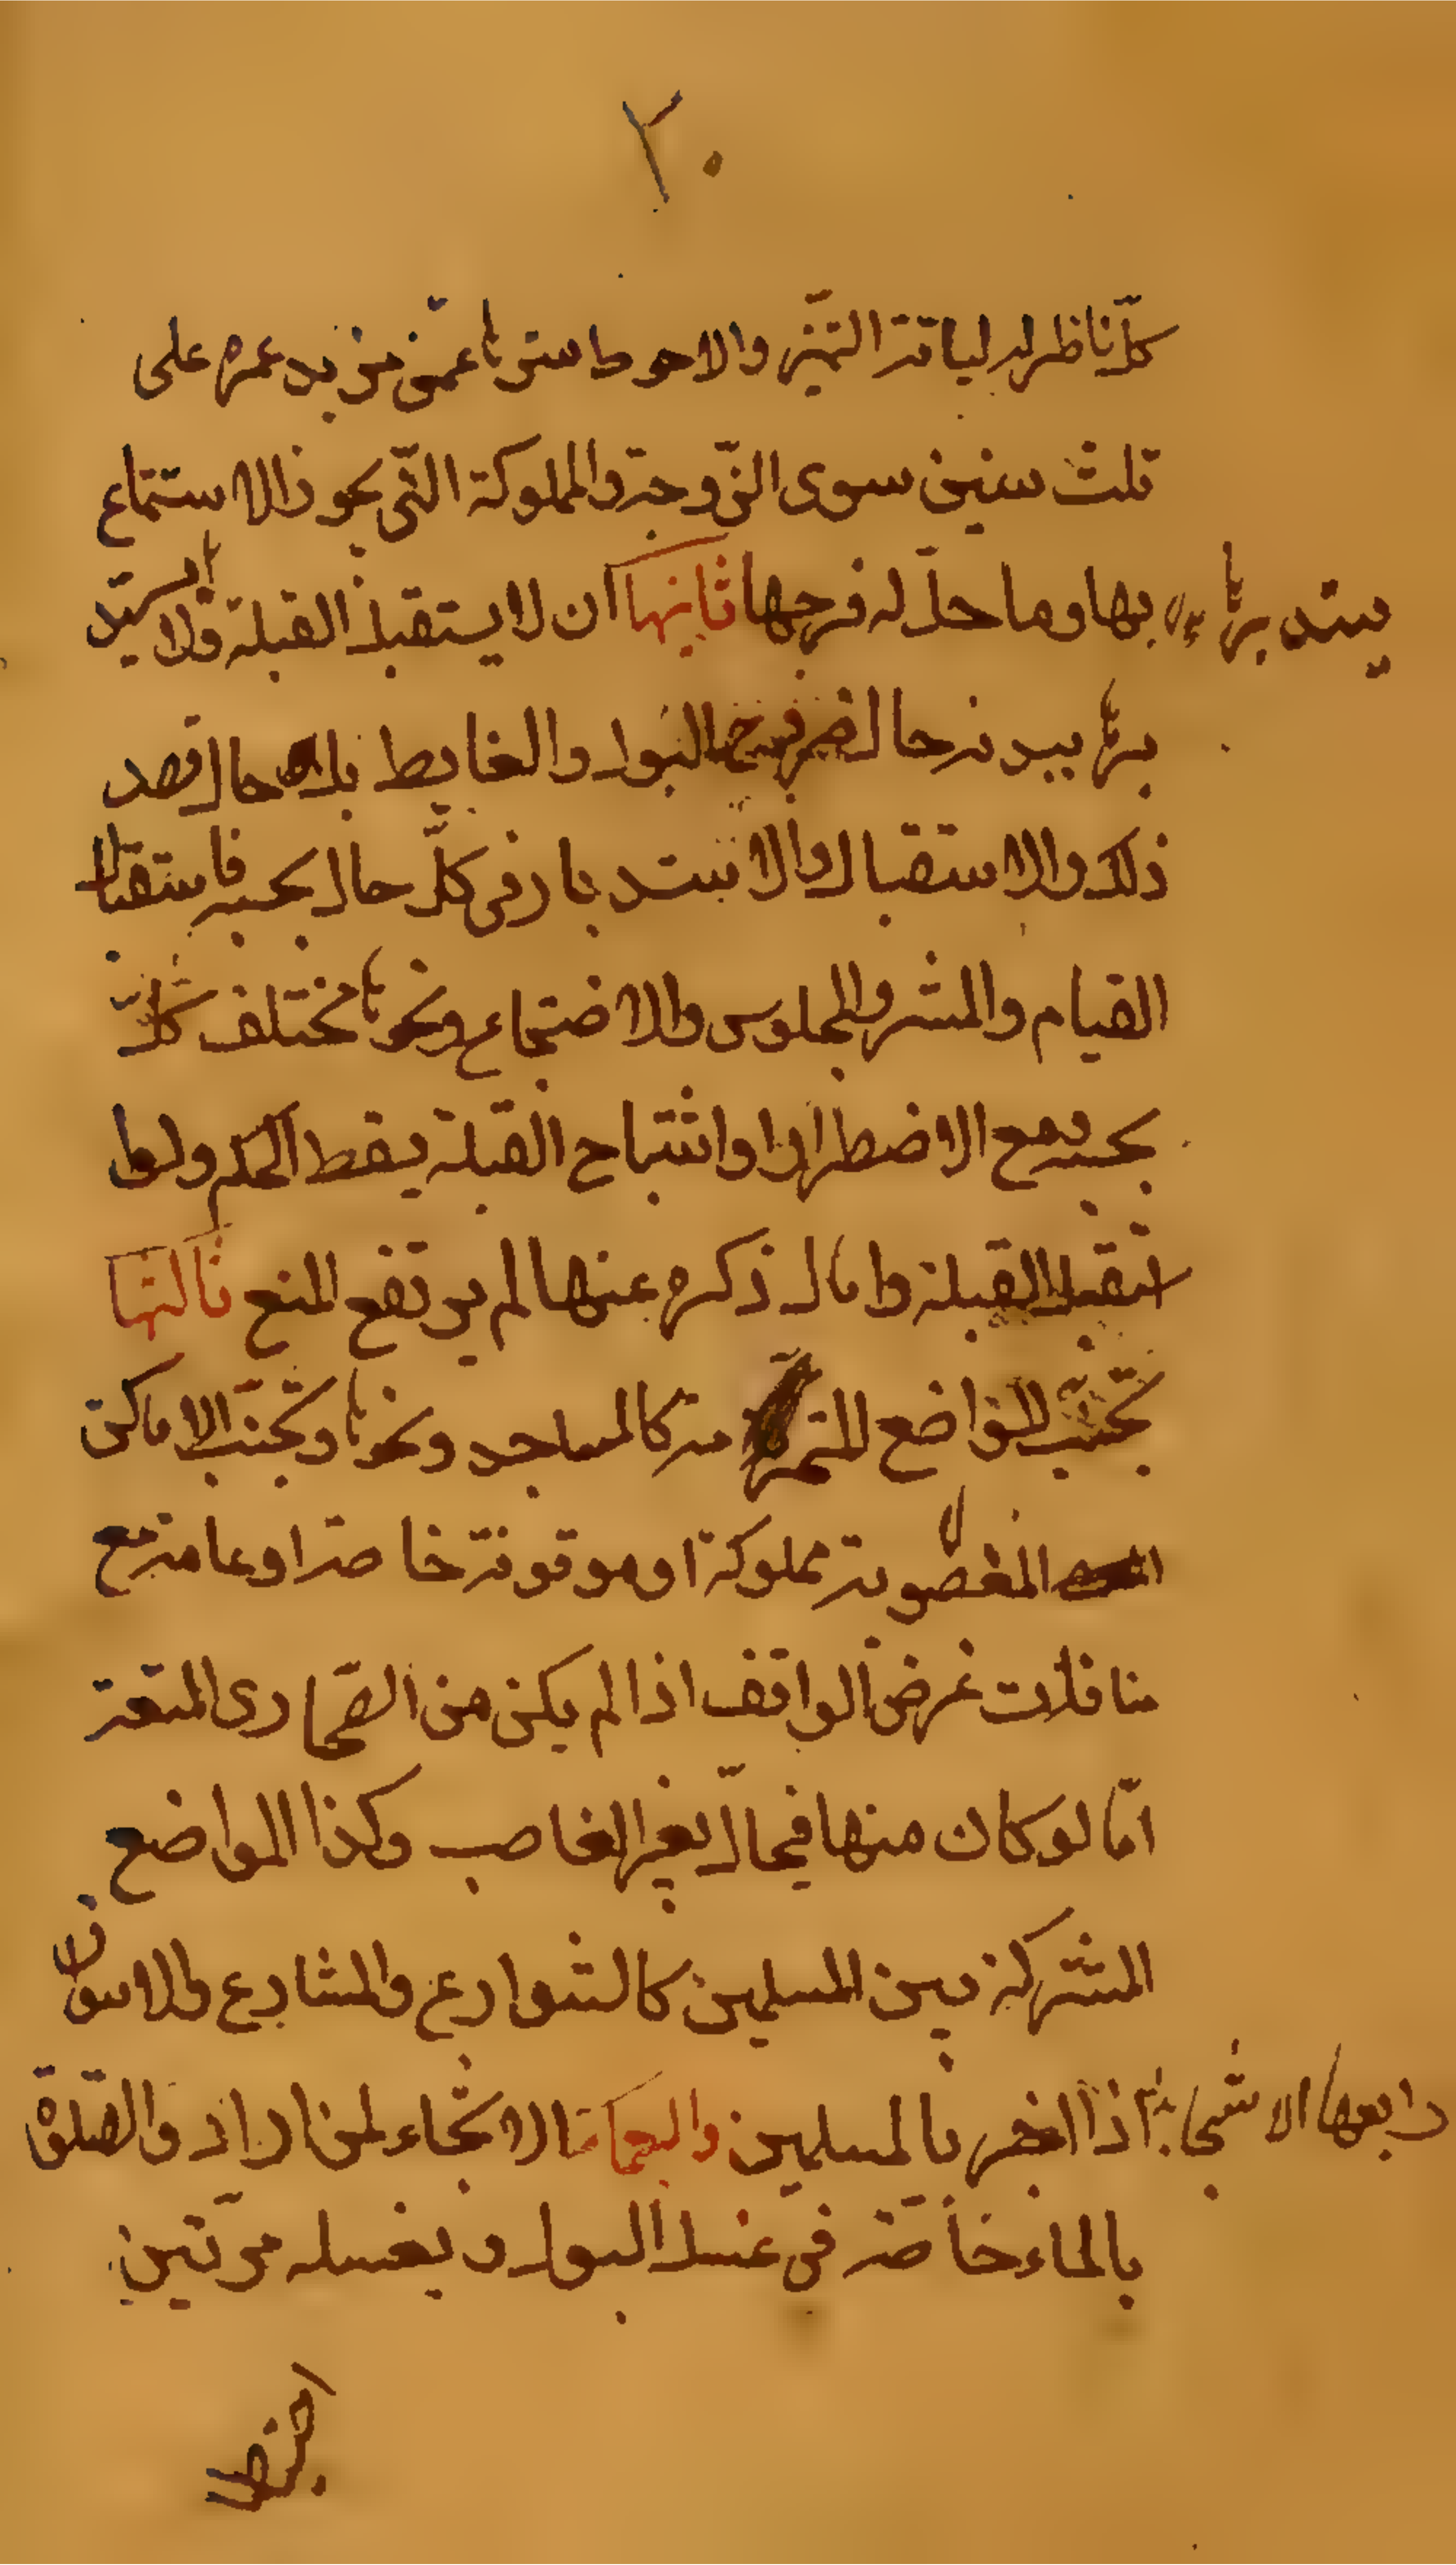 ٢٠
كلّ ناظر له لياقة التميّز والاحوط سترها عمّن يزيد عمره على
ثلث سنين سوى الزّوجة والمملوكة التّي يجوز الاستمتاع
بها وما حلّ له فرجها ثانيها ان لا يستقبل القبلة ولا
يستدبرها
ببدنه حال البول والغايط بل حال قصد
ذلك والاستقبال والاستدبار في كلّ حال بحسبه فاستقبال
القيام والجلوس والاضتجاع ونحوها مختلف كلّ
بحسبه ومع الاضطرار او اشتباح القبلة يسقط الحكم ولو
استقبل القبلة وامال ذكره عنها لم يرتفع المنع ثالثها
تجنّب المواضع كالمساجد ونحوها وتجنّب الاماكن
المغصوبة مملوكة او موقوفة خاصة او عامة مع
منافات غرض الواقف اذا لم يكن من الصّحارى المتّسعة
امّا لو كان منها فيحلّ لغير الغاصب وكذا المواضع
المشتركة بين المسلمين كالشوارع والمشارع والاسواق
اذا اضر بالمسلمين
رابعها الاستنجاء
لمن اراد الصلوة
بالماء خاصّة في غسل البول ويغسله مرّتين